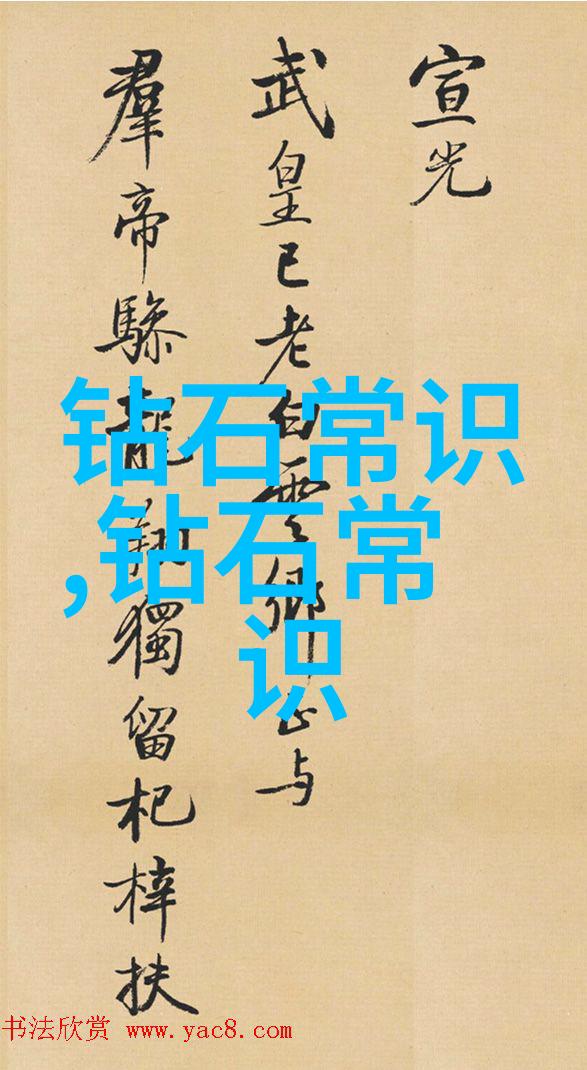 宣光
武皇已老白雲鄉正与
羣帝驂龍翔獨留杞梓扶
钻石常识
,钻石常
识
书法欣赏 www.yac8.com